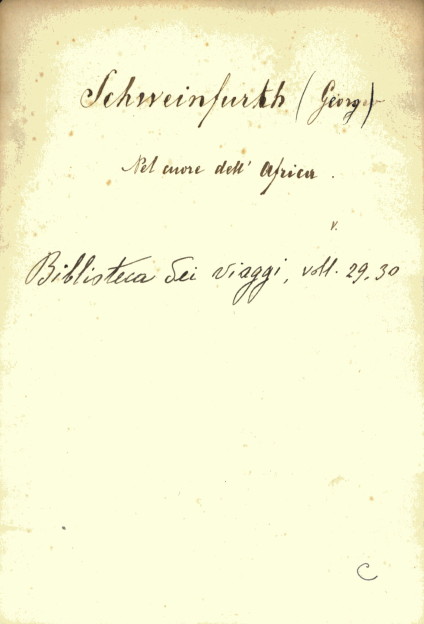 Schweinfurth (Georg)
Nel cuore dell' Africa.
v.
Biblioteca dei viaggi, voll. 29, 30
C